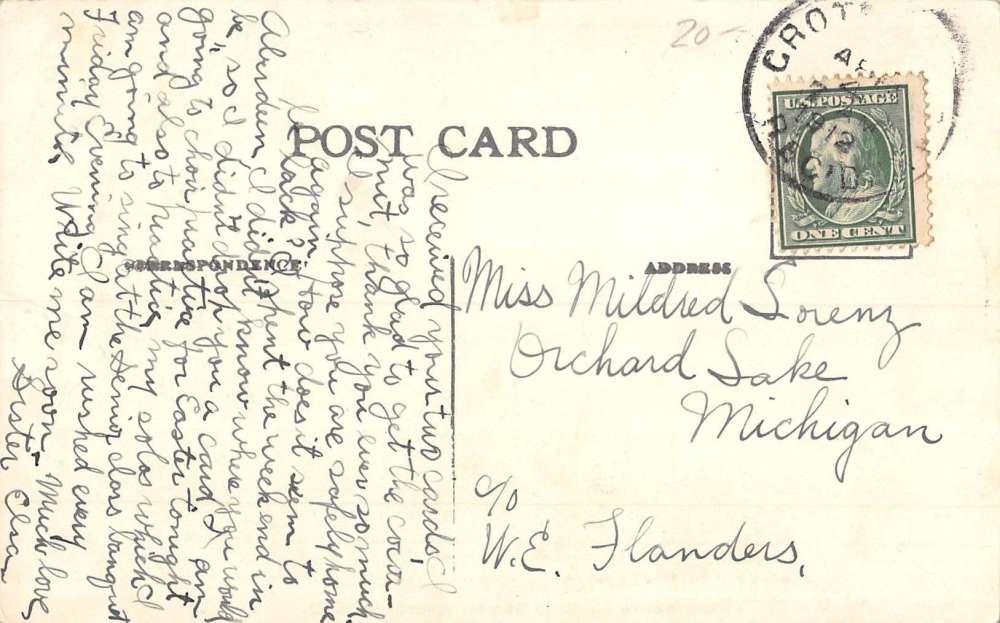 20-
GROT
AP
1912
S.D.
U.S. POSTAGE
ONE CENT
POST CARD
CORRESPONDENCE
ADDRESS
I received your two cards, I
was so glad to get the coin-
thank you ever so much.
I suppose you are safely home
again, how does it seem to
be back? I spent the week end in
Aberdeen, I didn't know where you would
be, so I didn't drop you a card. I am
going to choir practice for Easter tonight
and also to practice my solos which I
am going to sing at the Senior class banquet
Friday Evening. I am rushed every
minute, Write me soon- Much love,
Sister Elva
Miss Mildred Lorenz
Orchard Lake
Michigan
c/o
W.E. Flanders,